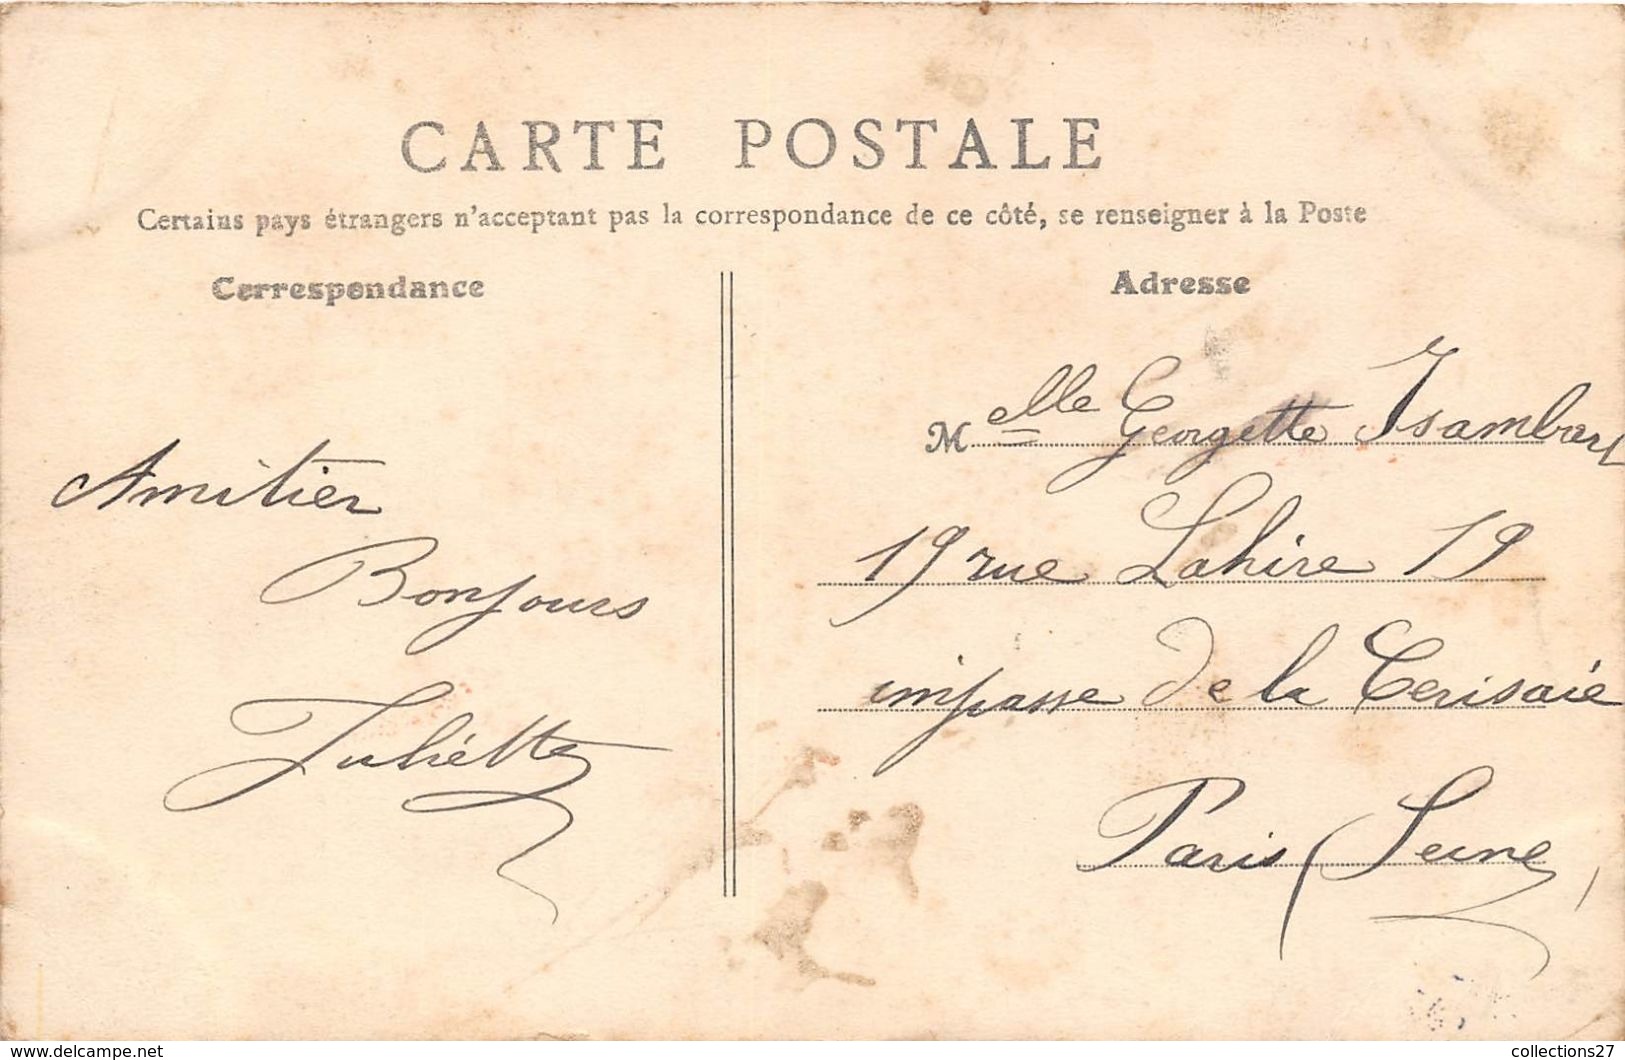 CARTE POSTALE
Certains pays étrangers n'acceptant pas la correspondance de ce côté, se renseigner à la Poste
Correspondance
Amitier
Bonjours
Juliétte
Adresse
Melle Georgette Isambart
19 rue Lahire 19
impasse de la Cerisaie
Paris (Seine)
www.delcampe.net
collections27